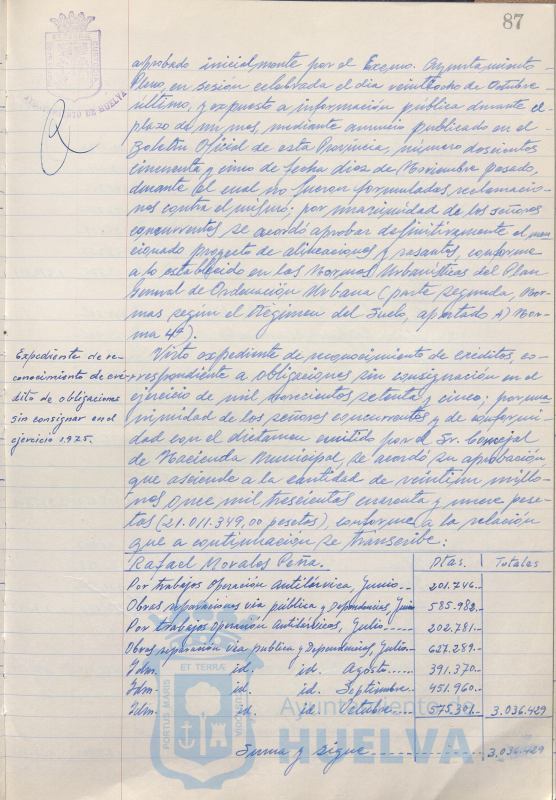 87
AYUNTAMIENTO DE HUELVA
aprobado inicialmente por el Excmo. Ayuntamiento
Pleno, en sesión celebrada el día veintiocho de Octubre
último, y expuesto a información pública durante el
plazo de un mes, mediante anuncio publicado en el
Boletín Oficial de esta Provincia, número doscientos
cincuenta y cinco de fecha diez de Noviembre pasado,
durante el cual no fueron formuladas reclamacio-
nes contra el mismo; por unanimidad de los señores
concurrentes se acordó aprobar definitivamente el men-
cionado proyecto de alineaciones y rasantes, conforme
a lo establecido en las Normas Urbanísticas del Plan
General de Ordenación Urbana (parte segunda, Nor-
mas según el Régimen del Suelo, apartado A) Nor-
ma 4ª).
Expediente de re-
conocimiento de cré-
dito de obligaciones
sin consignar en el
ejercicio 1.975.
Visto expediente de reconocimiento de créditos, co-
rrespondiente a obligaciones sin consignación en el
ejercicio de mil novecientos setenta y cinco; por una-
nimidad de los señores concurrentes y de conformi-
dad con el dictamen emitido por el Sr. Concejal
de Hacienda Municipal, se acordó su aprobación
que asciende a la cantidad de veintiun millo-
nes once mil trescientas cuarenta y nueve pese-
tas (21.011.349,00 pesetas), conforme a la relación
que a continuación se transcribe:
Rafael Morales Peña. Ptas. Totales
Por trabajos Operación Antilárvica, Junio.. 201.746.-
Obras reparaciones vía pública y Dependencias, Junio 585.982.-
Por trabajos Operación Antilárvicos, Julio.. 202.781.-
Obras reparación vía publica y Dependencias, Julio.. 627.289.-
Idm. id. id. Agosto...... 391.370.-
Idm. id. id. Septiembre... 451.960.-
Idm. id. id. Octubre.... 575.301.- 3.036.429
Suma y sigue ............ 3.036.429
PORTUS MARIS ET TERRAE CUSTODIA
Ayuntamiento de
HUELVA